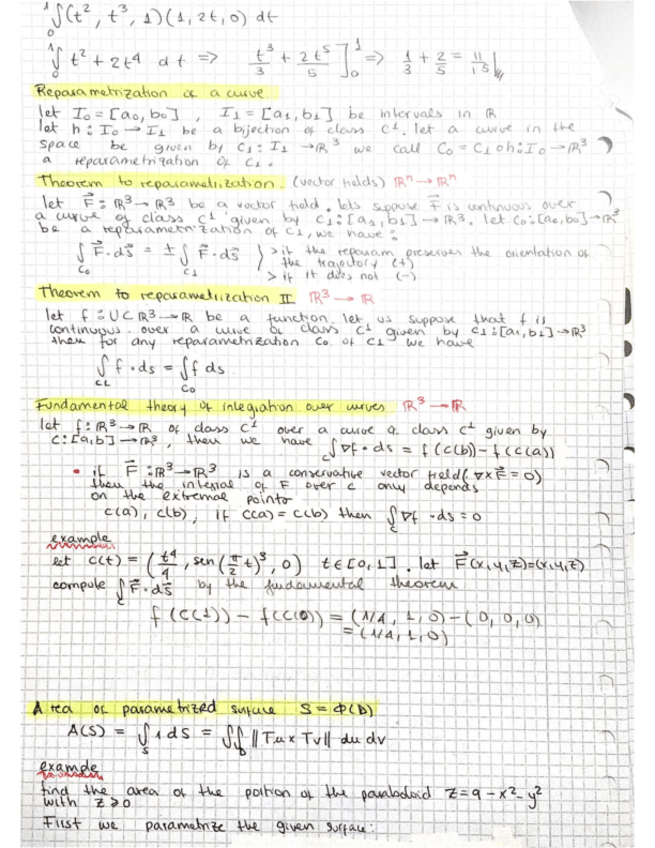 ₀∫¹(t², t³, 1)(1, 2t, 0) dt
₀∫¹ t² + 2t⁴ dt => t³/3 + 2t⁵/5 ]₀¹ => 1/3 + 2/5 = 11/15
Reparametrization of a curve
let I₀ = [a₀, b₀] , I₁ = [a₁, b₁] be intervals in ℝ
let h: I₀ → I₁ be a bijection of class C¹. let a curve in the
space be given by C₁: I₁ → ℝ³ we call C₀ = C₁ o h: I₀ → ℝ³
a reparametrization of C₁.
Theorem to reparametrization. (vector fields) ℝⁿ → ℝⁿ
let F⃗: ℝ³ → ℝ³ be a vector field. lets suppose F⃗ is continuous over
a curve of class C¹ given by C₁: [a₁, b₁] → ℝ³. let C₀: [a₀, b₀] → ℝ³
be a reparametrization of C₁, we have:
∫_C₀ F⃗ · ds⃗ = ± ∫_C₁ F⃗ · ds⃗ > if the reparam preserves the orientation of
the trajectory (+)
> if it does not (-)
Theorem to reparametrization II. ℝ³ → ℝ
let f: U ⊂ ℝ³ → ℝ be a function. let us suppose that f is
continuous over a curve of class C¹ given by C₁: [a₁, b₁] → ℝ³
then for any reparametrization C₀ of C₁ we have
∫_C₁ f · ds = ∫_C₀ f ds.
Fundamental theory of integration over curves ℝ³ → ℝ
let f: ℝ³ → ℝ of class C¹ over a curve of class C¹ given by
C: [a, b] → ℝ³, then we have ∫_C ∇f · ds = f(c(b)) - f(c(a))
• if F⃗: ℝ³ → ℝ³ is a conservative vector field (∇×F⃗ = 0)
then the integral of F over c only depends
on the extremal points
c(a), c(b), if c(a) = c(b) then ∫_C ∇f · ds = 0
example
let c(t) = (t⁴/4, sen(π/2 t)³, 0) t ∈ [0, 1]. let F⃗(x, y, z) = (x, y, z)
compute ∫_C F⃗ · ds⃗ by the fundamental theorem
f(c(1)) - f(c(0)) = (1/4, 1, 0) - (0, 0, 0)
= (1/4, 1, 0)
Area of parametrized surface S = Φ(D)
A(S) = ∫_S 1 dS = ∬_D ||Tu × Tv|| du dv
example
find the area of the portion of the paraboloid z = 9 - x² - y²
with z ≥ 0
First we parametrize the given surface: